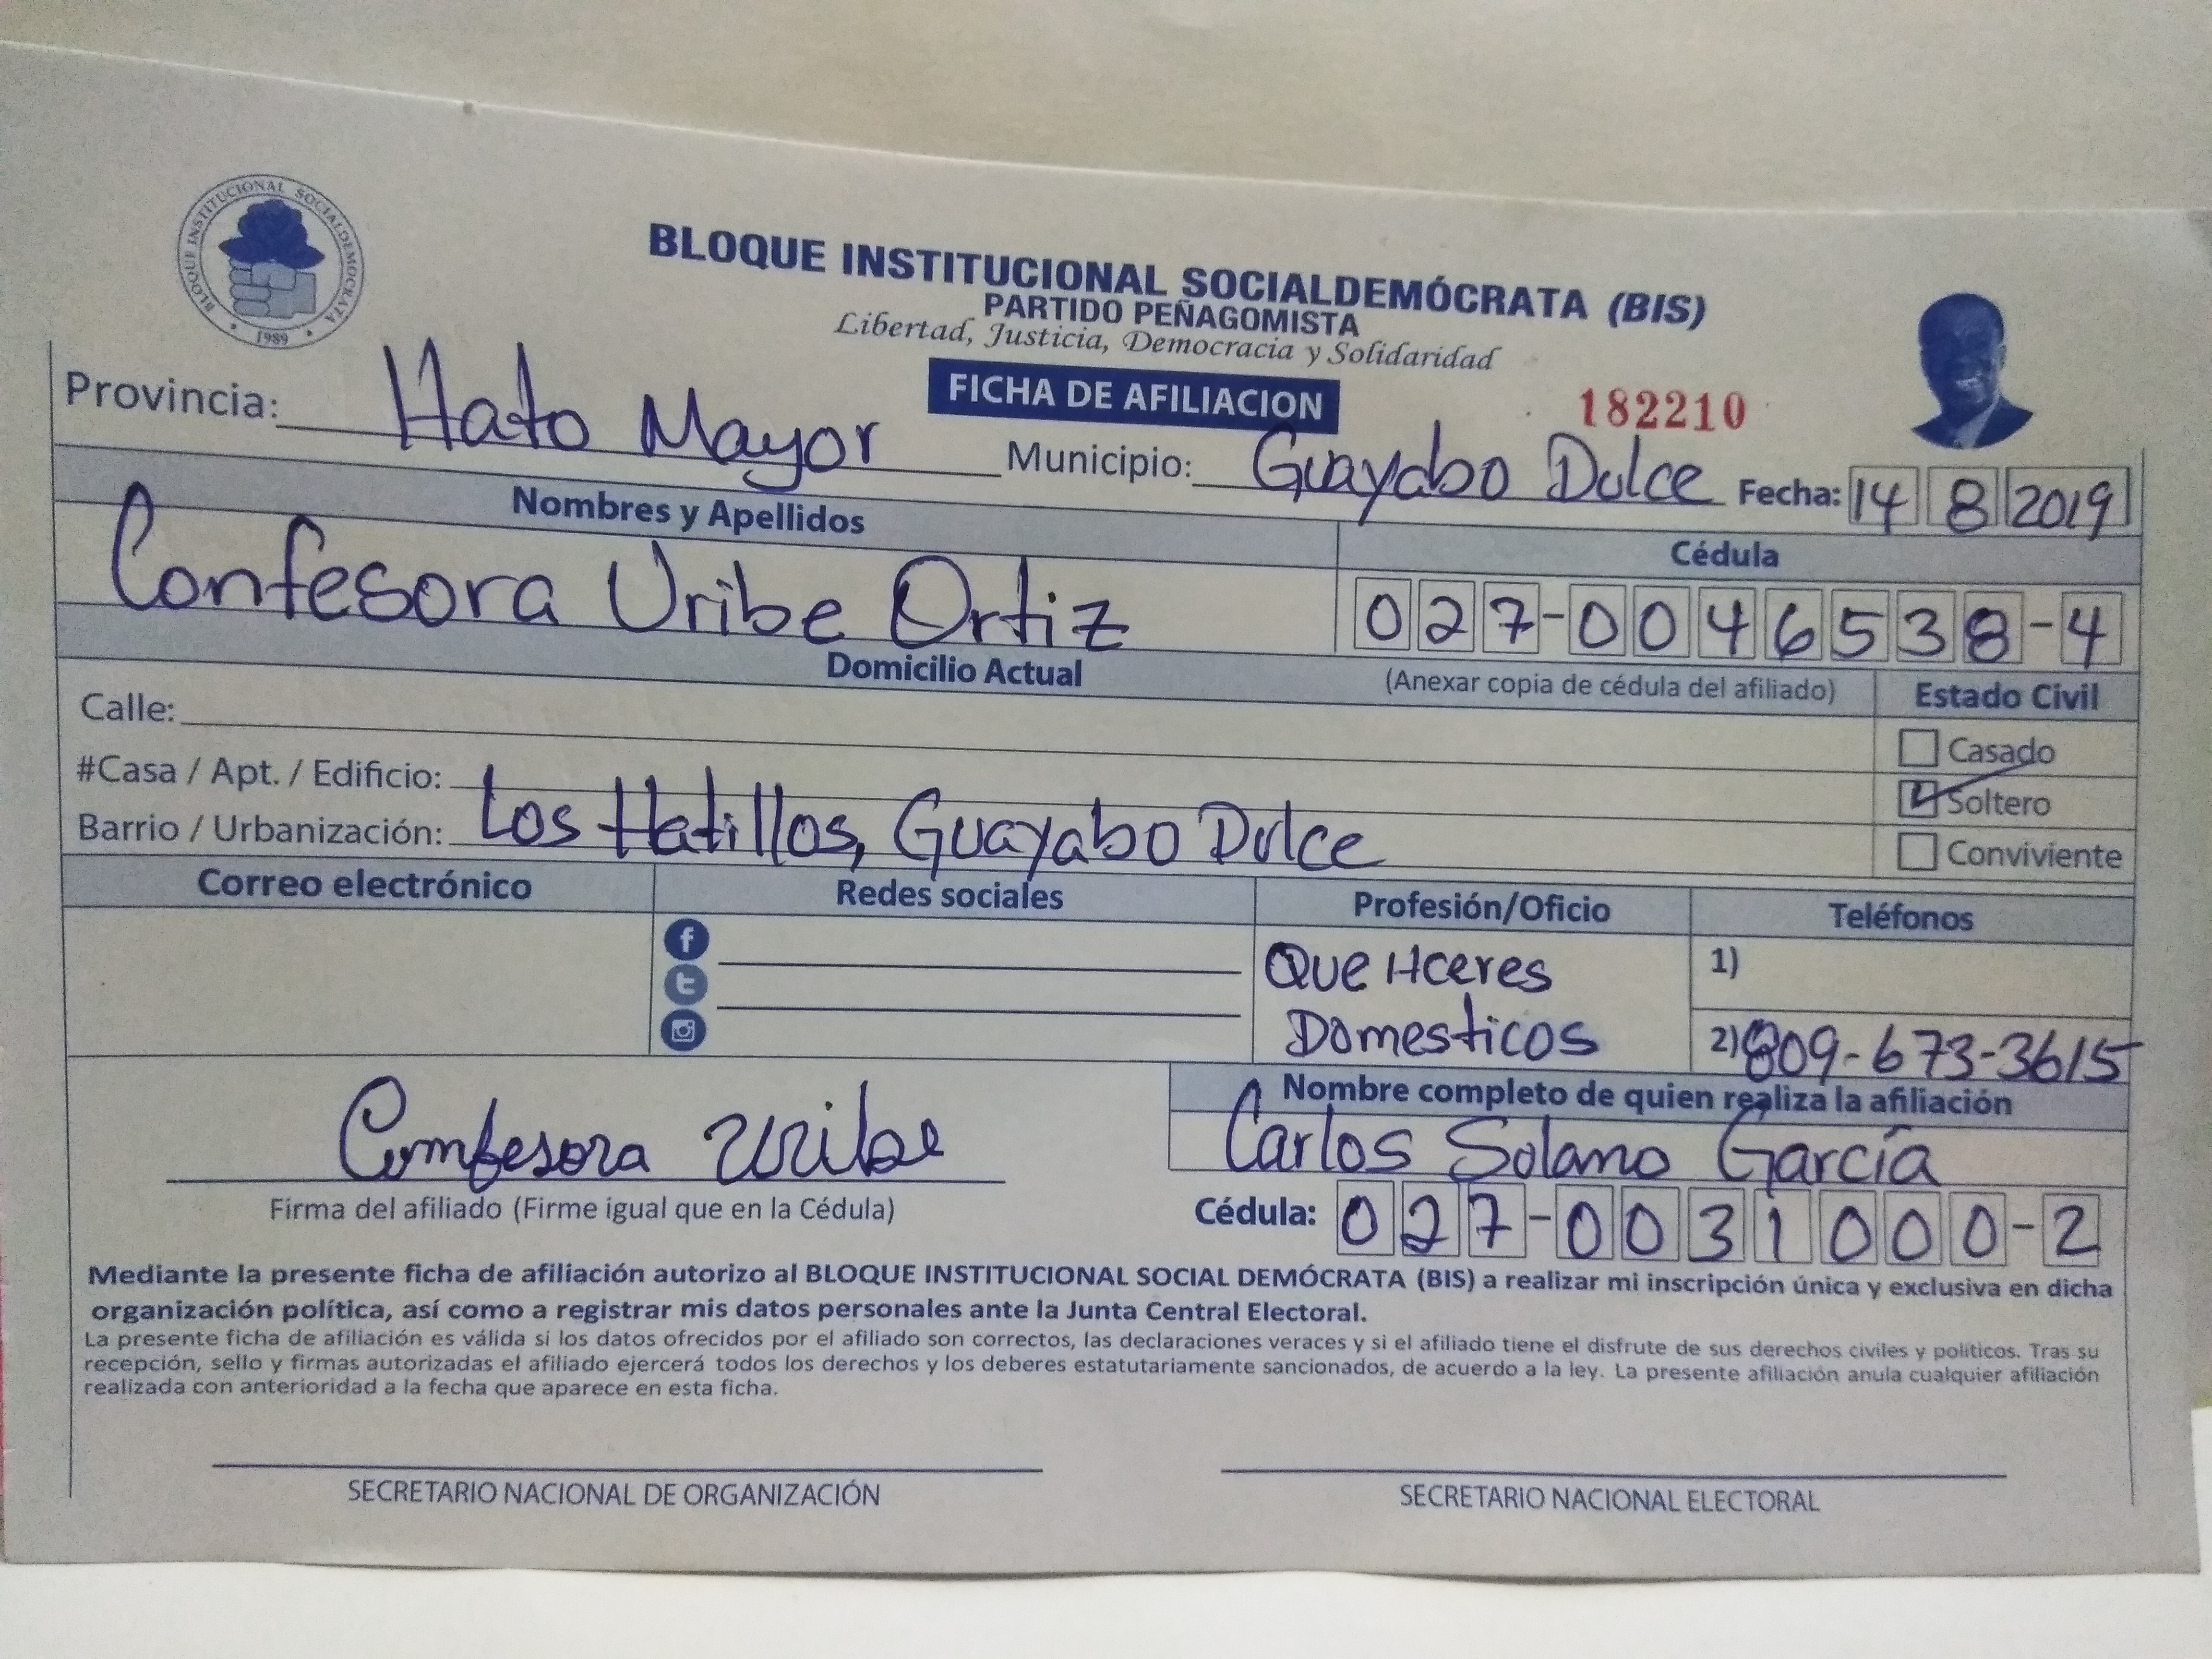 BLOQUE INSTITUCIONAL SOCIALDEMOCRATA
1989
BLOQUE INSTITUCIONAL SOCIALDEMÓCRATA (BIS)
PARTIDO PEÑAGOMISTA
Libertad, Justicia, Democracia y Solidaridad
FICHA DE AFILIACION
182210
Provincia: Hato Mayor Municipio: Guayabo Dulce Fecha: 14 8 2019
Nombres y Apellidos
Cédula
Confesora Uribe Ortiz
027-0046538-4
Domicilio Actual
(Anexar copia de cédula del afiliado)
Estado Civil
Calle:
Casado
#Casa / Apt. / Edificio:
Soltero
Barrio / Urbanización: Los Hatillos, Guayabo Dulce
Conviviente
Correo electrónico
Redes sociales
Profesión/Oficio
Teléfonos
Que Hceres
Domesticos
1)
2) 809-673-3615
Nombre completo de quien realiza la afiliación
Carlos Solano García
Comfesora Uribe
Firma del afiliado (Firme igual que en la Cédula)
Cédula: 027-0031000-2
Mediante la presente ficha de afiliación autorizo al BLOQUE INSTITUCIONAL SOCIAL DEMÓCRATA (BIS) a realizar mi inscripción única y exclusiva en dicha
organización política, así como a registrar mis datos personales ante la Junta Central Electoral.
La presente ficha de afiliación es válida si los datos ofrecidos por el afiliado son correctos, las declaraciones veraces y si el afiliado tiene el disfrute de sus derechos civiles y políticos. Tras su
recepción, sello y firmas autorizadas el afiliado ejercerá todos los derechos y los deberes estatutariamente sancionados, de acuerdo a la ley. La presente afiliación anula cualquier afiliación
realizada con anterioridad a la fecha que aparece en esta ficha.
SECRETARIO NACIONAL DE ORGANIZACIÓN
SECRETARIO NACIONAL ELECTORAL